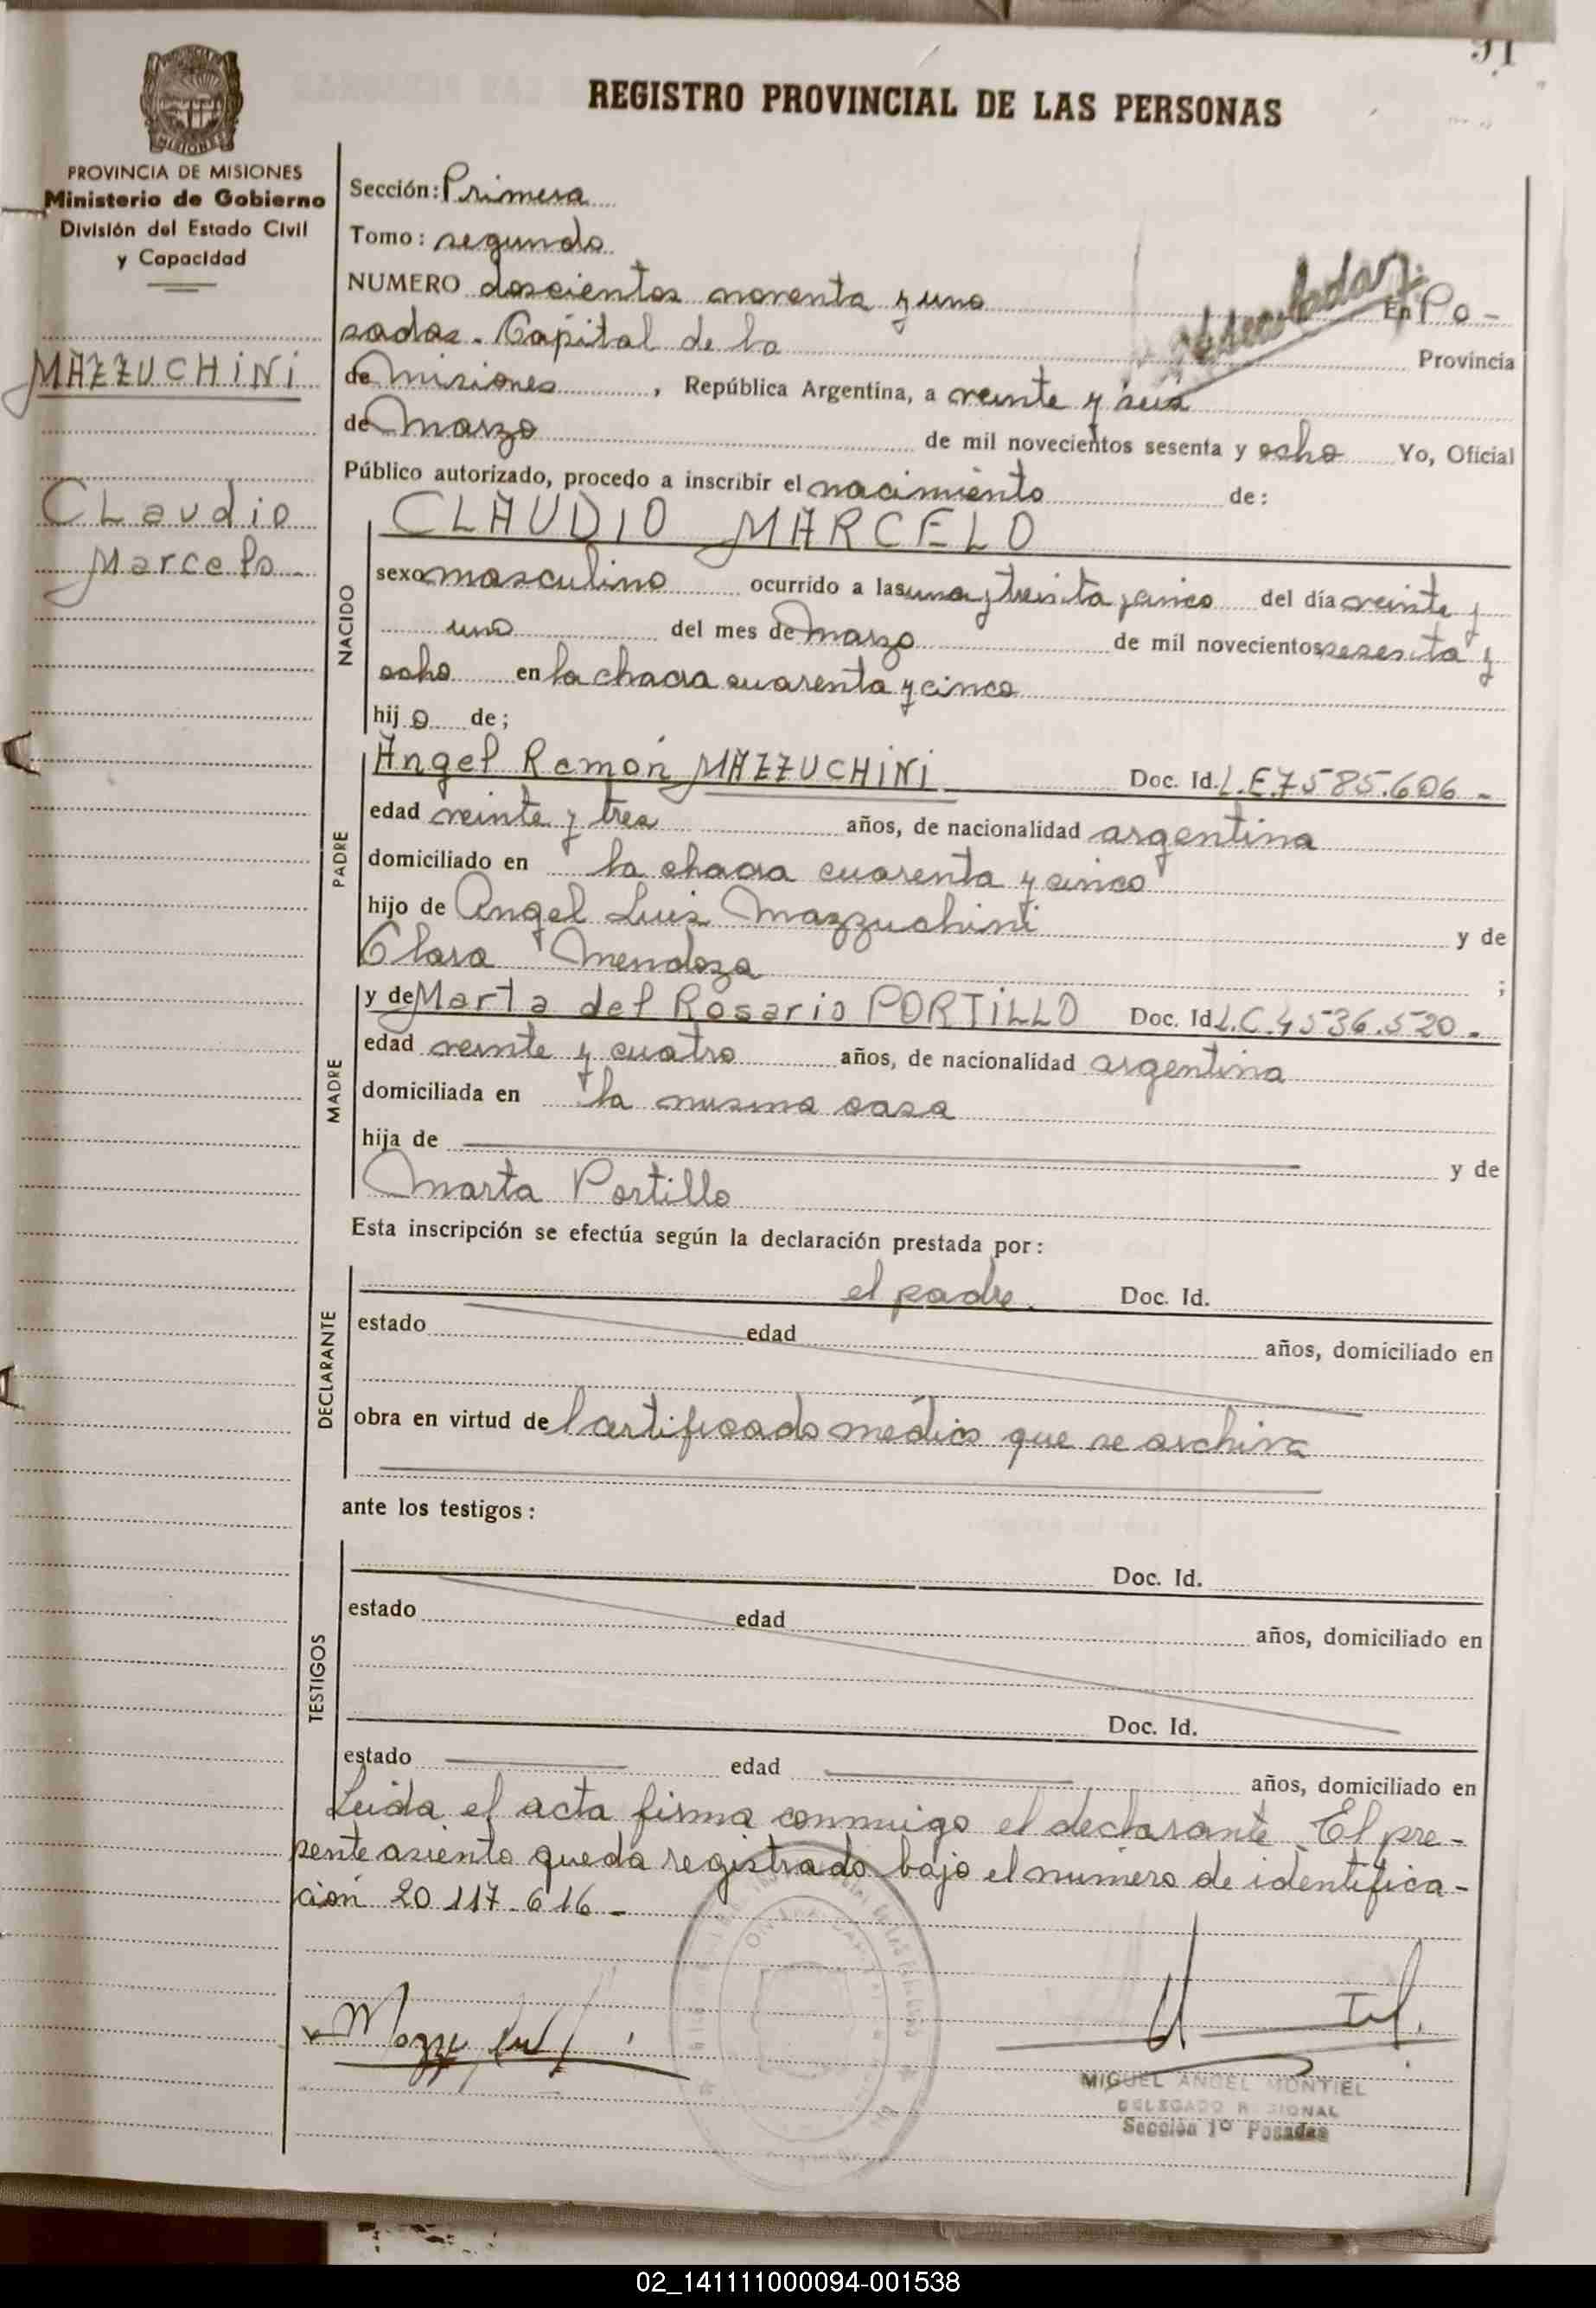 91
REGISTRO PROVINCIAL DE LAS PERSONAS
MISIONES
PROVINCIA DE MISIONES
Ministerio de Gobierno
División del Estado Civil
y Capacidad
MAZZUCHiNi
CLaudio
Marcelo
Sección: Primera
Tomo: segundo
NUMERO doscientos noventa y uno En Po-
sadas. Capital de la Provincia
de Misiones, República Argentina, a veinte y seis
de Marzo de mil novecientos sesenta y ocho Yo, Oficial
Público autorizado, procedo a inscribir el nacimiento de:
NACIDO
CLAUDIO MARCELO
sexo masculino ocurrido a las una y treinta y cinco del día veinte y
uno del mes de Marzo de mil novecientos sesenta y
ocho en la chacra cuarenta y cinco
hijo de;
PADRE
Angel Ramón MAZZUCHiNi Doc. Id. L.E.7585.606-
edad veinte y tres años, de nacionalidad argentina
domiciliado en la chacra cuarenta y cinco
hijo de Angel Luis Mazzuchini y de
Clara Mendoza ;
MADRE
y de Marta del Rosario PORTiLLO Doc. Id. L.C.4536.520-
edad veinte y cuatro años, de nacionalidad argentina
domiciliada en la misma casa
hija de y de
Marta Portillo
Esta inscripción se efectúa según la declaración prestada por:
DECLARANTE
el padre. Doc. Id.
estado edad años, domiciliado en
obra en virtud del certificado médico que se archiva
ante los testigos:
TESTIGOS
Doc. Id.
estado edad años, domiciliado en
Doc. Id.
estado edad años, domiciliado en
Leida el acta firma conmigo el declarante. El pre-
sente asiento queda registrado bajo el número de identifica-
ción 20.117.616-
MIGUEL ANGEL MONTIEL
DELEGADO REGIONAL
Sección 1º Posadas
02_141111000094-001538